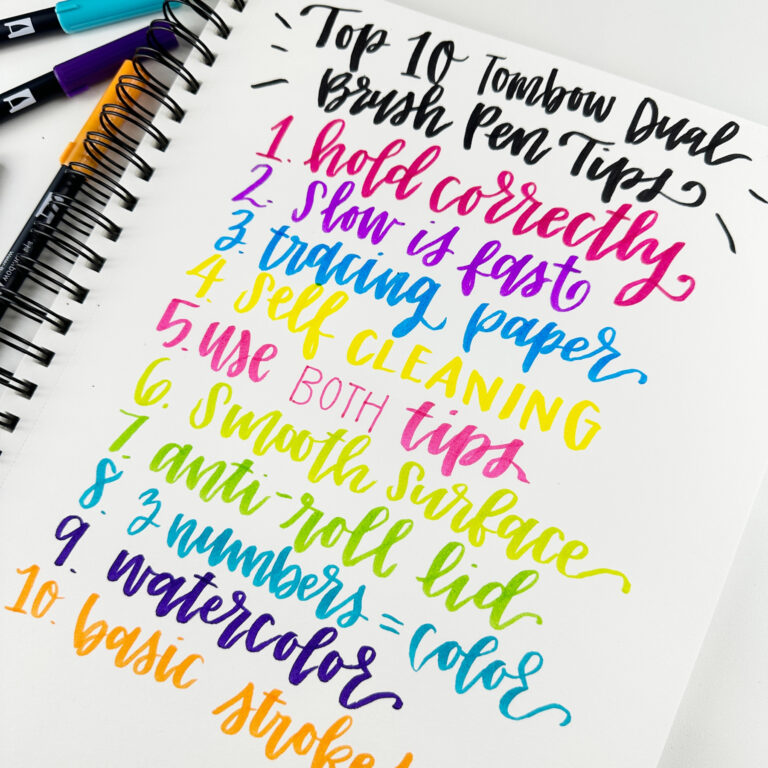 Top 10 Tombow Dual
Brush Pen Tips
1. hold correctly
2. Slow is fast
3. tracing paper
4. Self CLEANING
5. use BOTH tips
6. Smooth Surface
7. anti-roll lid
8. 3 numbers = color
9. watercolor
10. basic strokes